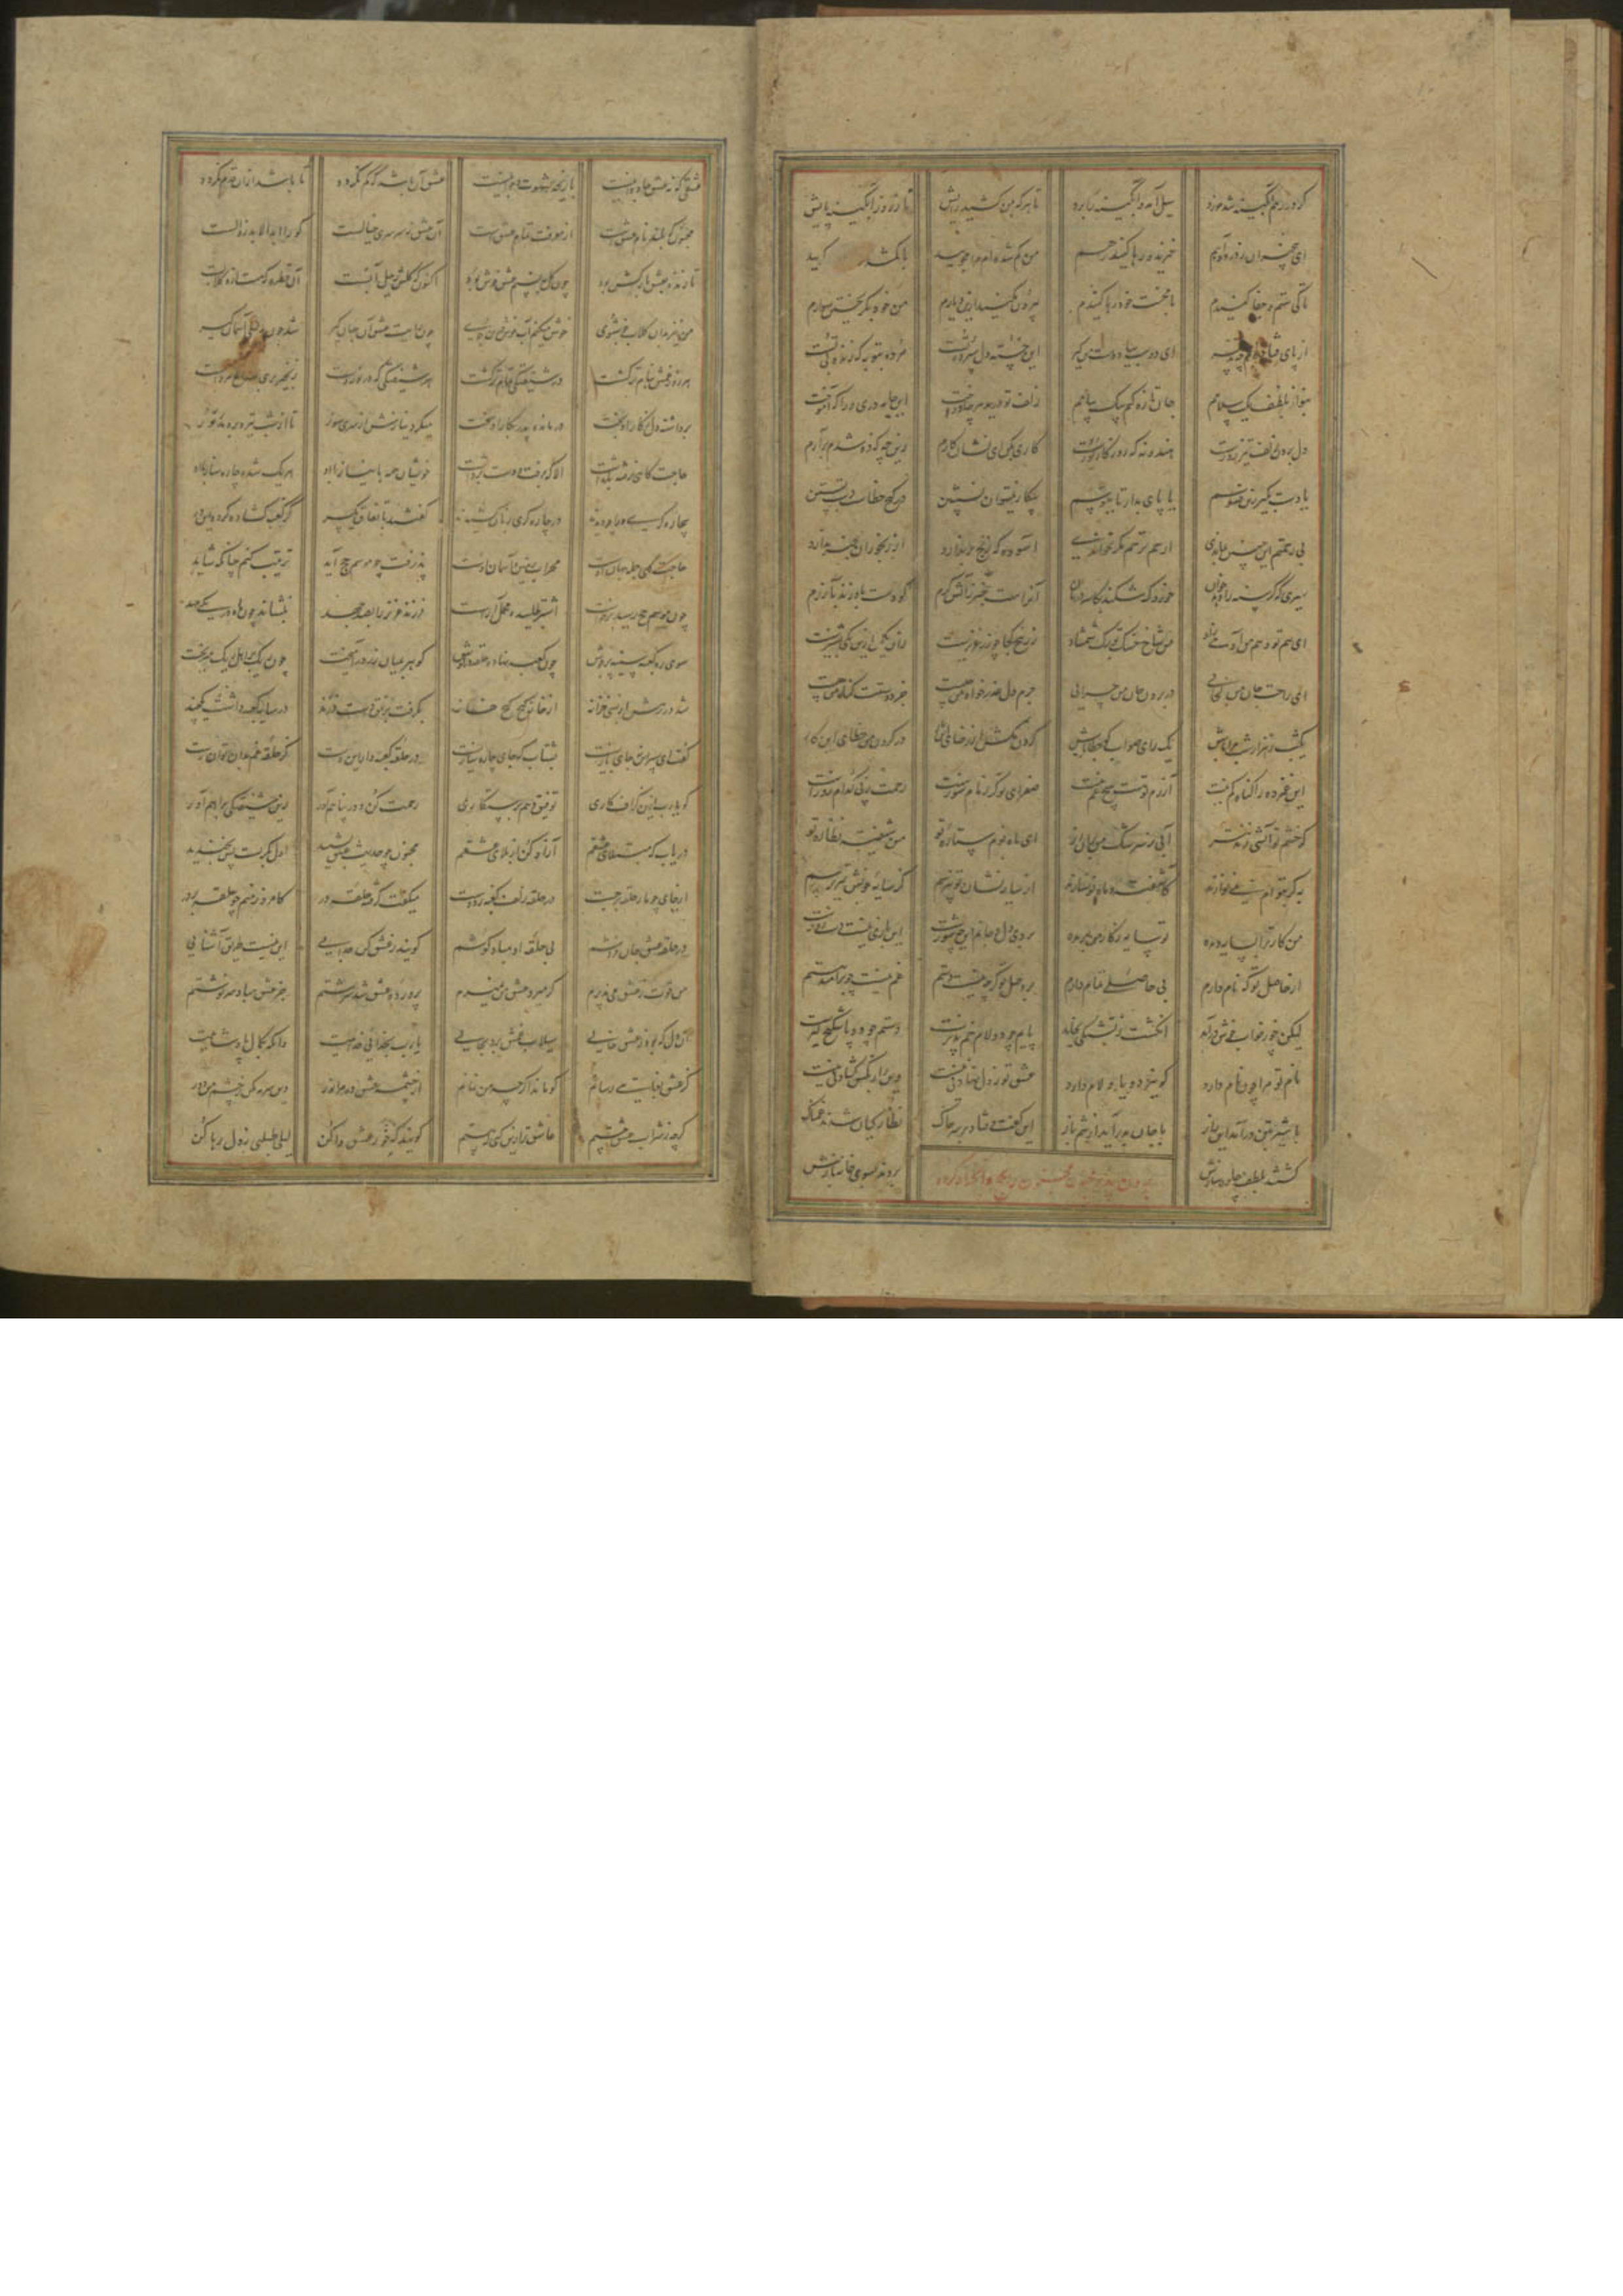 کو در رهم آبگینه شد خورد سیل آمد و آبگینه را برد تا هر که بمن کشید تازارد ز آبگینه پایش
ای بیخبران ز درد و آهم خیزید و رها کنید من گم شده ام مرا مجویید با گمشد
تا کی ستم و جفا کنیدم با محنت خود رها کنیدم بیرون مکنید ازین دیارم من خود بگریختن سوارم
از پای فتاده ام چه تدبیر ای دوست بیا و دست من گیر این خسته دل سپرده تست
بنواز بلطف یک سلامم جان تازه کنم بیک پیامم
دل بردن زلف تو نه زورست هندو نه که روزگار کورست کاری بکن ای نشان کارم زین چه که فرو شدم برآرم
یا دست بگیر زین فسوسم یا پای بدار تا ببوسم بیکار نمیتوان نشستن در کنج خطاست دست بستن
بی رحمتیم این چنین چه ماندی ارحم ترحم مگر نخواندی آسوده که رنج بر ندارد از رنجوران خبر ندارد
سیری که گرسنه را نهد خوان خردک شکند بکاسه در نان آنراست خبر ز آتش گرم کو دست باو زند بی آزرم
ای هم تو و هم من آدمی زاد من شاخ خشک تو برگ شمشاد
ای راحت جان من کجایی در بردن جان من چرایی جرم دل عذرخواه من چیست جز دوستیت گناه من چیست
یکشب ز هزار شب مرا باش یک رای صواب گو خطا باش گردن مکش از رضای این کار در گردن من خطای این کار
این غمزده را گناه کم نیست آزرم تو هست هیچ غم نیست صفرای تو گر نام سوزست رحمت بکن کدام روزست
گر خشم تو آتشی زند تیز آبی ز سرشک من بر آن ریز ای ماه نوم ستاره تو من شیفته نظاره تو
به گر بتو ام نمی نوازند کآشفته و ماه نو نسازند از سایه نشان تو نپرسم کز سایه خویش نیز ترسم
من کار ترا بسایه دیده تو سایه ز کار من بریده بردی دل و جانم این چه شورست این بازی نیست دست زورست
از حاصل تو که نام دارم بی حاصلیی تمام دارم بر وصل تو گرچه نیست دستم غم نیست چو بر امید هستم
لیکن چو بخواب خوش در آید انگشت ز تشنگی بخاید پایم چو دو لام خم پذیرست دستم چو دو یا شکنج گیرست
نام تو مرا چو نام دارد کو نیز دو یا دو لام دارد عشق تو ز دل نهادنی نیست وین راز بکس گشادنی نیست
با شیر بتن در آمد این راز با جان بدر آید از تنم باز این گفت و فتاد بر سر خاک نظارگیان شدند غمناک
گشتند بلطف چاره سازش بردن پدر مجنون را بکعبه بردند بسوی خانه بازش
عشقی که نه عشق جاودانیست بازیچه شهوت جوانیست عشق آن باشد که کم نگردد تا باشد از آن قدم نگردد
مجنون که بلند نام عشق است از معرفت تمام عشق است آن عشق نه سرسری خیالست کو را ابد الابد زوالست
تا زنده بعشق بارکش بود چون گل بنسیم عشق خوش بود اکنون که گلش رحیل یابست آن قطره که ماند ازو گلابست
من نیز بدان گلاب خوشبوی خوش میکنم آب خود درین جوی چون رایت عشق آن جهانگیر شد چون مه لیلی آسمان گیر
هر روز بعشق نام تر گشت در شیفتگی تمام تر گشت هر شیفتگی کزان نورست زنجیر بر صداع دورست
برداشته دل ز کار او بخت درمانده پدر بکار او سخت میکرد نیایش از سر سوز تا زان شب تیره بردمد روز
حاجت گاهی نرفته نگذاشت الا که برفت و دست برداشت خویشان همه با نیاز او هر یک شده چاره ساز با او
بیچارگی ورا چو دیدند در چاره گری زبان کشیدند گفتند باتفاق یکسر کز کعبه گشاده گردد این در
حاجت گه جمله جهان اوست محراب زمین و آسمان اوست پذرفت چو موسم حج آید ترتیب کنم چنانکه شاید
چون موسم حج رسید برخاست اشتر طلبید و محمل آراست فرزند عزیز را بصد جهد بنشاند چو ماه در یکی مهد
سوی در کعبه سینه پر جوش چون کعبه نهاد حلقه در گوش گوهر بمیان زر در آمیخت چون ریگ بر اهل ریگ میریخت
شد در رهش از بسی خزانه از خانه گنج گنج خانه بگرفت برفق دست فرزند در سایه کعبه داشت یکچند
گفت ای پسر این نه جای بازیست بشتاب که جای چاره سازیست در حلقه کعبه دار این دست کز حلقه غم بدان توان رست
گو یا رب ازین گزاف کاری توفیق دهم برستگاری رحمت کن و در پناهم آور زین شیفتگی براهم آور
دریاب که مبتلای عشقم آزاد کن از بلای عشقم مجنون چو حدیث عشق بشنید اول بگریست پس بخندید
از جای چو مار حلقه بر جست در حلقه زلف کعبه زد دست میگفت گرفته حلقه در بر کامروز منم چو حلقه بر در
در حلقه عشق جان فروشم بی حلقه او مباد گوشم گویند ز عشق کن جدایی این نیست طریق آشنایی
من قوت ز عشق می پذیرم گر میرد عشق من بمیرم پرورده عشق شد سرشتم جز عشق مباد سرنوشتم
آن دل که بود ز عشق خالی سیلاب غمش برد بحالی یا رب بخدایی خداییت وانگه بکمال پادشاهیت
کز عشق بغایتی رسانم کو ماند اگر چه من نمانم از چشمه عشق ده مرا نور وین سرمه مکن ز چشم من دور
گرچه ز شراب عشق مستم عاشق تر ازین کنم که هستم گویند که خو ز عشق وا کن لیلی طلبی ز دل رها کن